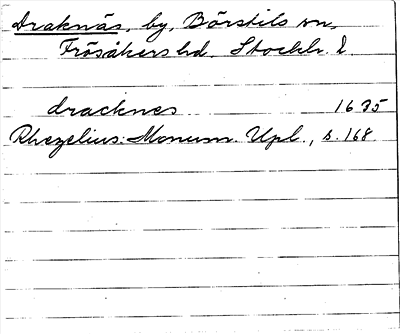 Draknäs, by, Börstils sn,
Frösåkers hd. Stockh. l.
dracknes 1635
Rhezelius: Monum. Upl., s. 168